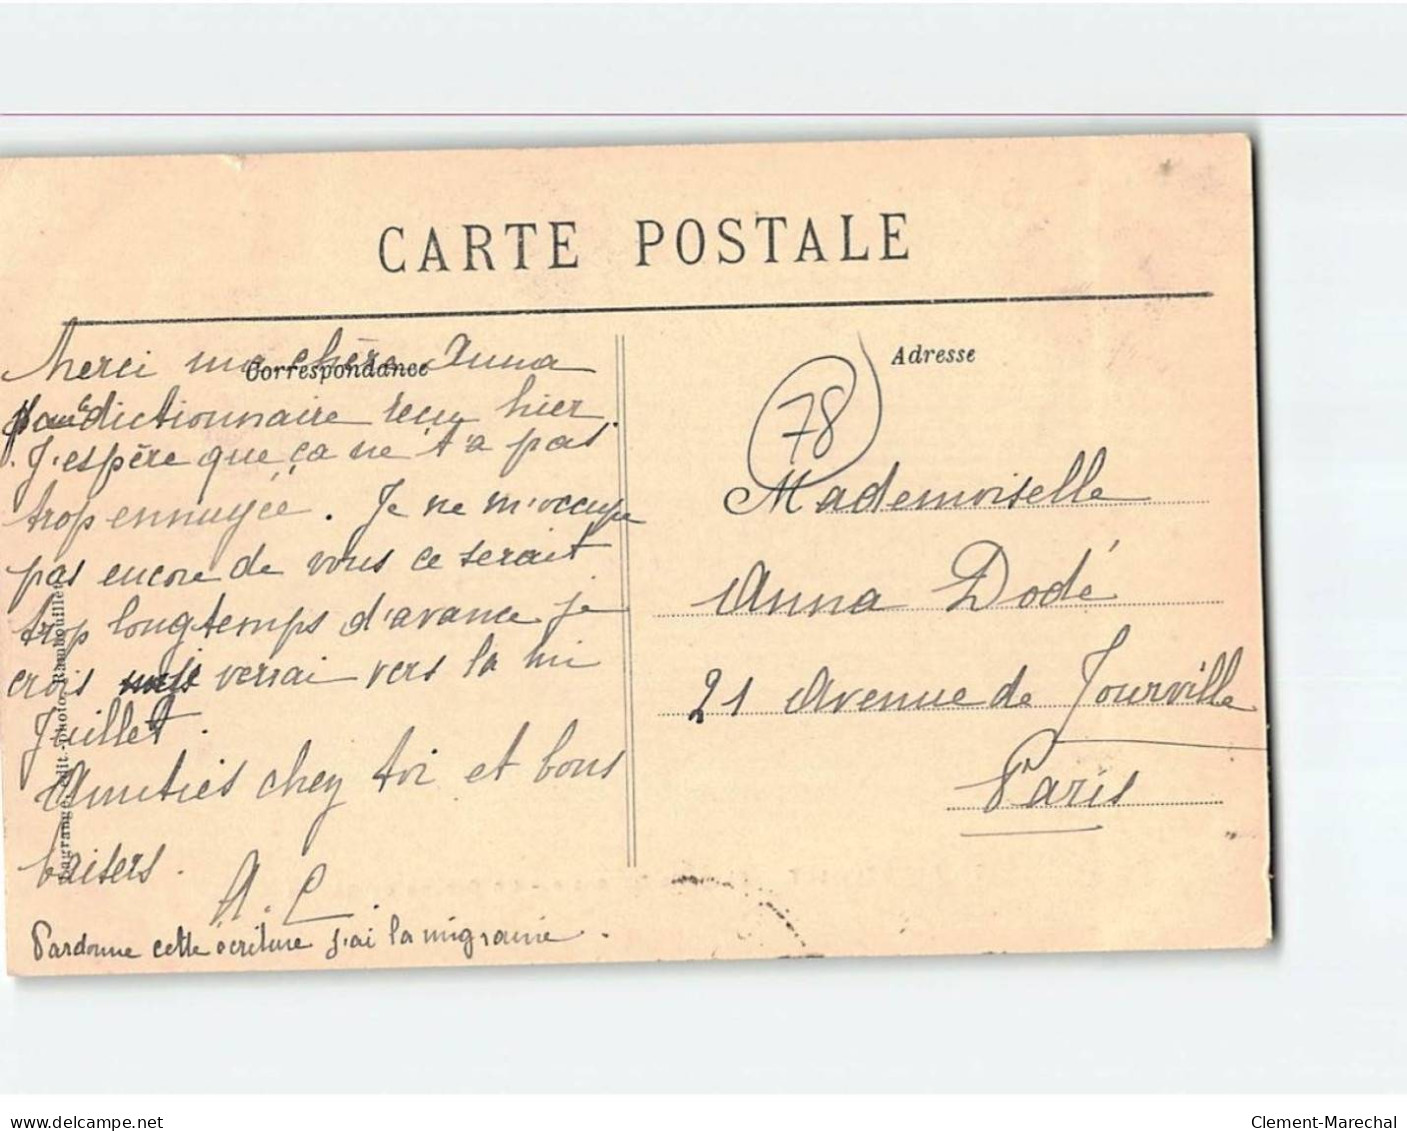 CARTE POSTALE
Correspondance
Merci ma chère Anna
pour le dictionnaire reçu hier.
J'espère que ça ne t'a pas
trop ennuyée. Je ne m'occupe
pas encore de vous ce serait
trop longtemps d'avance je
crois verrai vers la mi
Juillet.
Amitiés chez toi et bons
baisers.
A. L.
Pardonne cette écriture j'ai la migraine.
Lagrange, édit.-photo, Rambouillet
Adresse
78
Mademoiselle
Anna Dodé
21 Avenue de Tourville
Paris
www.delcampe.net
Clement-Marechal